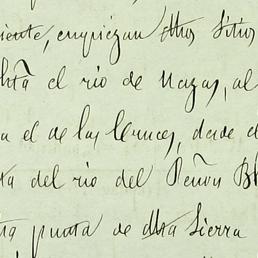 iente, empiezan dhos Sitios
hta el rio de Nazas, al
a el de las Cruces, desde d
ta del rio del Peñon Bl
tra punta de dha Sierra